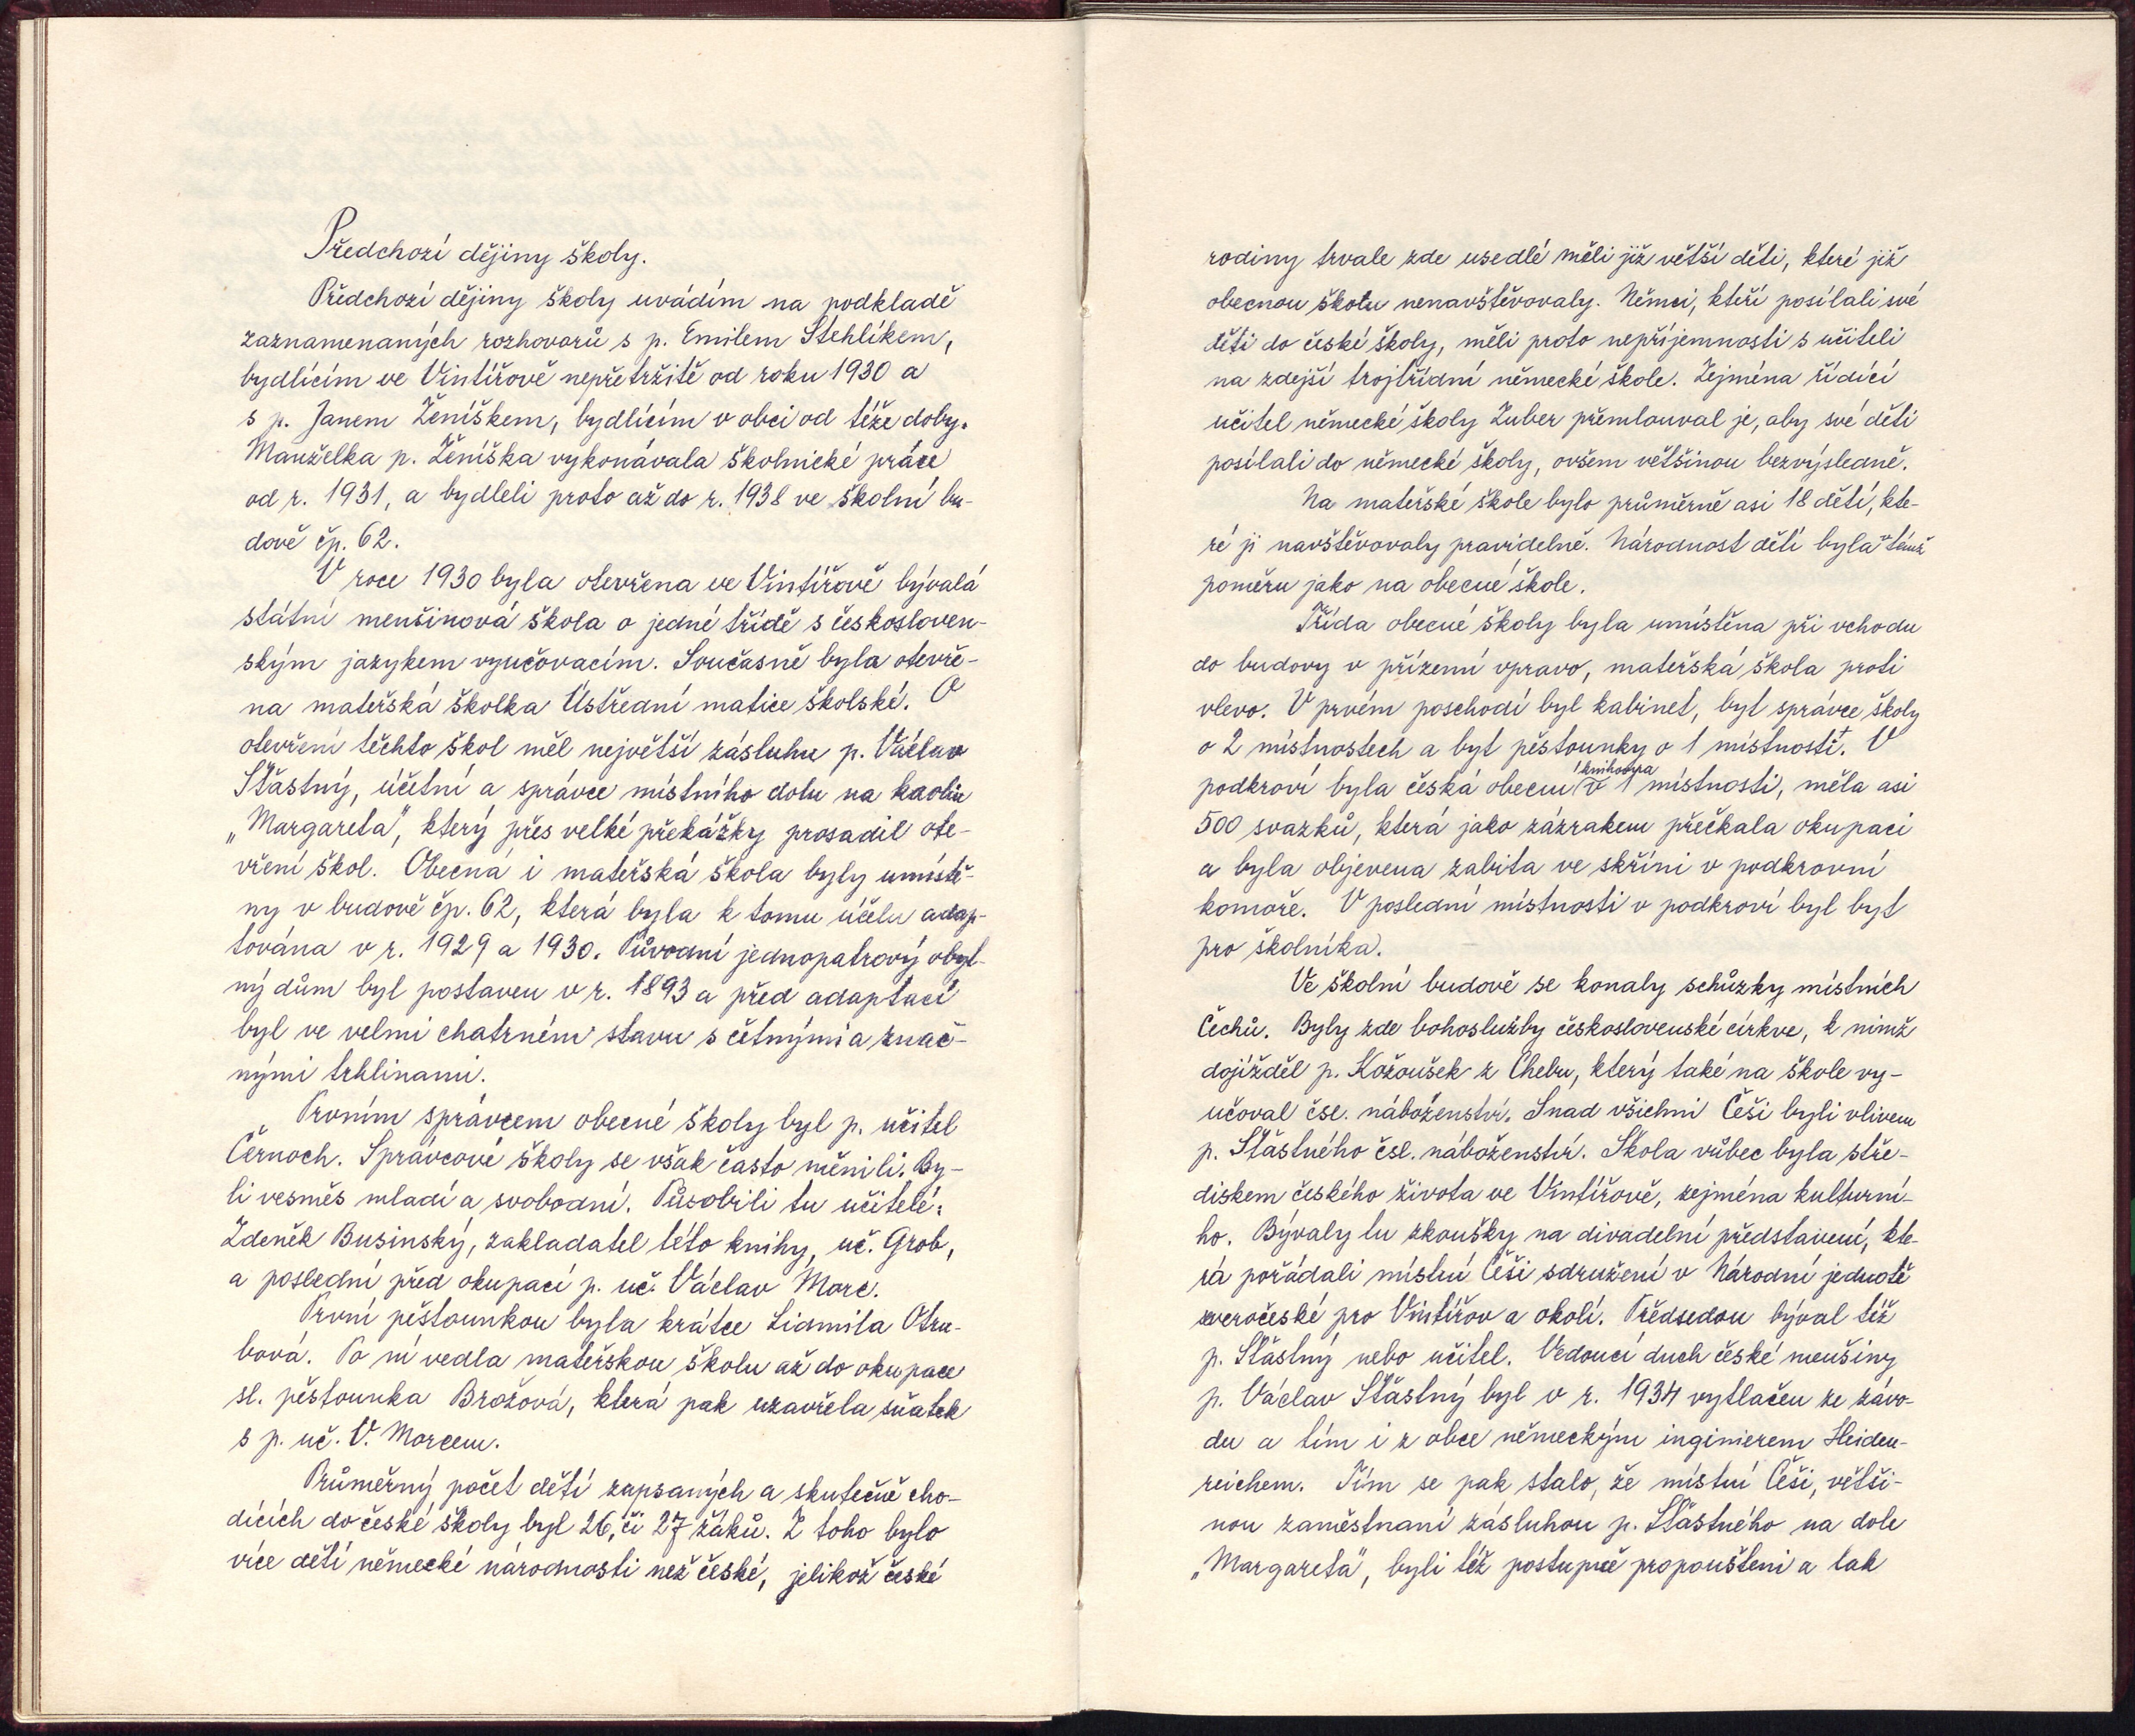 Předchozí dějiny školy.
Předchozí dějiny školy uvádím na podkladě
zaznamenaných rozhovorů s p. Emilem Stehlíkem,
bydlícím ve Vintířově nepřetržitě od roku 1930 a
s p. Janem Ženíškem, bydlícím v obci od téže doby.
Manželka p. Ženíška vykonávala školnické práce
od r. 1931, a bydleli proto až do r. 1938 ve školní bu-
dově čp. 62.
V roce 1930 byla otevřena ve Vintířově bývalá
státní menšinová škola o jedné třídě s českosloven-
ským jazykem vyučovacím. Současně byla otevře-
na mateřská školka Ústřední matice školské. O
otevření těchto škol měl největší zásluhu p. Václav
Šťastný, účetní a správce místního dolu na kaolin
„Margareta", který přes velké překážky prosadil ote-
vření škol. Obecná i mateřská škola byly umístě-
ny v budově čp. 62, která byla k tomu účelu adap-
tována v r. 1929 a 1930. Původní jednopatrový obyt-
ný dům byl postaven v r. 1893 a před adaptací
byl ve velmi chatrném stavu s četnými a znač-
nými trhlinami.
Prvním správcem obecné školy byl p. učitel
Černoch. Správcové školy se však často měnili. By-
li vesměs mladí a svobodní. Působili tu učitelé:
Zdeněk Businský, zakladatel této knihy, uč. Grob,
a poslední před okupací p. uč. Václav Morc.
První pěstounkou byla krátce Lidmila Otru-
bová. Po ní vedla mateřskou školu až do okupace
sl. pěstounka Brožová, která pak uzavřela sňatek
s p. uč. V. Morcem.
Průměrný počet dětí zapsaných a skutečně cho-
dících do české školy byl 26, či 27 žáků. Z toho bylo
více dětí německé národnosti než české, jelikož české
rodiny trvale zde usedlé měli již větší děti, které již
obecnou školu nenavštěvovaly. Němci, kteří posílali své
děti do české školy, měli proto nepříjemnosti s učiteli
na zdejší trojtřídní německé škole. Zejména řídící
učitel německé školy Zuber přemlouval je, aby své děti
posílali do německé školy, ovšem většinou bezvýsledně.
Na mateřské škole bylo průměrně asi 18 dětí, kte-
ré ji navštěvovaly pravidelně. Národnost dětí byla v témž
poměru jako na obecné škole.
Třída obecné školy byla umístěna při vchodu
do budovy v přízemí vpravo, mateřská škola proti
vlevo. V prvém poschodí byl kabinet, byt správce školy
o 2 místnostech a byt pěstounky o 1 místnosti. V
podkroví byla česká obecní knihovna v 1 místnosti, měla asi
500 svazků, která jako zázrakem přečkala okupaci
a byla objevena zabita ve skříni v podkrovní
komoře. V poslední místnosti v podkroví byl byt
pro školníka.
Ve školní budově se konaly schůzky místních
Čechů. Byly zde bohoslužby československé církve, k nimž
dojížděl p. Kožoušek z Chebu, který také na škole vy-
učoval čsl. náboženství. Snad všichni Češi byli vlivem
p. Šťastného čsl. náboženství. Škola vůbec byla stře-
diskem českého života ve Vintířově, zejména kulturní-
ho. Bývaly tu zkoušky na divadelní představení, kte-
rá pořádali místní Češi sdružení v Národní jednotě
severočeské pro Vintířov a okolí. Předsedou býval též
p. Šťastný nebo učitel. Vedoucí duch české menšiny
p. Václav Šťastný byl v r. 1934 vytlačen ze závo-
du a tím i z obce německým inginierem Heiden-
reichem. Tím se pak stalo, že místní Češi, větši-
nou zaměstnaní zásluhou p. Šťastného na dole
„Margareta", byli též postupně propouštěni a tak